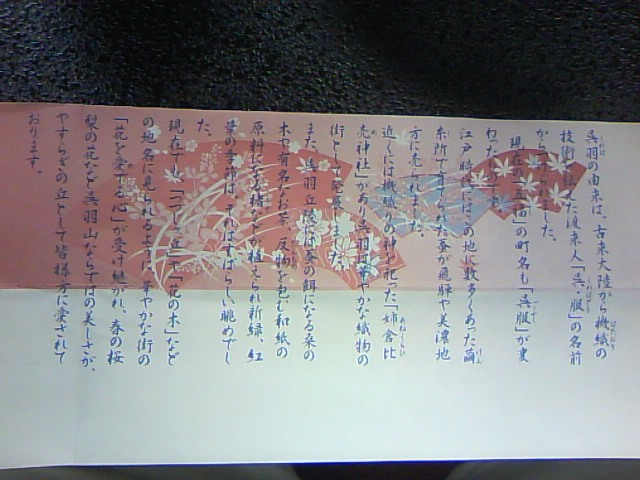 呉羽の由来は、古来大陸から機織の
技術を伝えた渡来人「呉服」の名前
からつけられました。
現在「五福」の町名も「呉服」が変
わった
江戸時代にはこの地に数多くあった繭
糸所で育てられた蚕が飛騨や美濃地
方に売られました。
近くには機織りの神を祀った「姉倉比
売神社」があり呉羽は華やかな織物の
街として発展
また、呉羽丘陵には蚕の餌になる桑の
木や有名なお茶、反物を包む和紙の
原料になる楮などが植えられ新緑、紅
葉の季節は、それはすばらしい眺めでし
た。
現在でも「つつじヶ丘」や「花の木」など
の地名に見られるように華やかな街の
「花を愛でる心」が受け継がれ、春の桜
梨の花など呉羽山ならではの美しさが、
やすらぎの丘として皆様方に愛されて
おります。